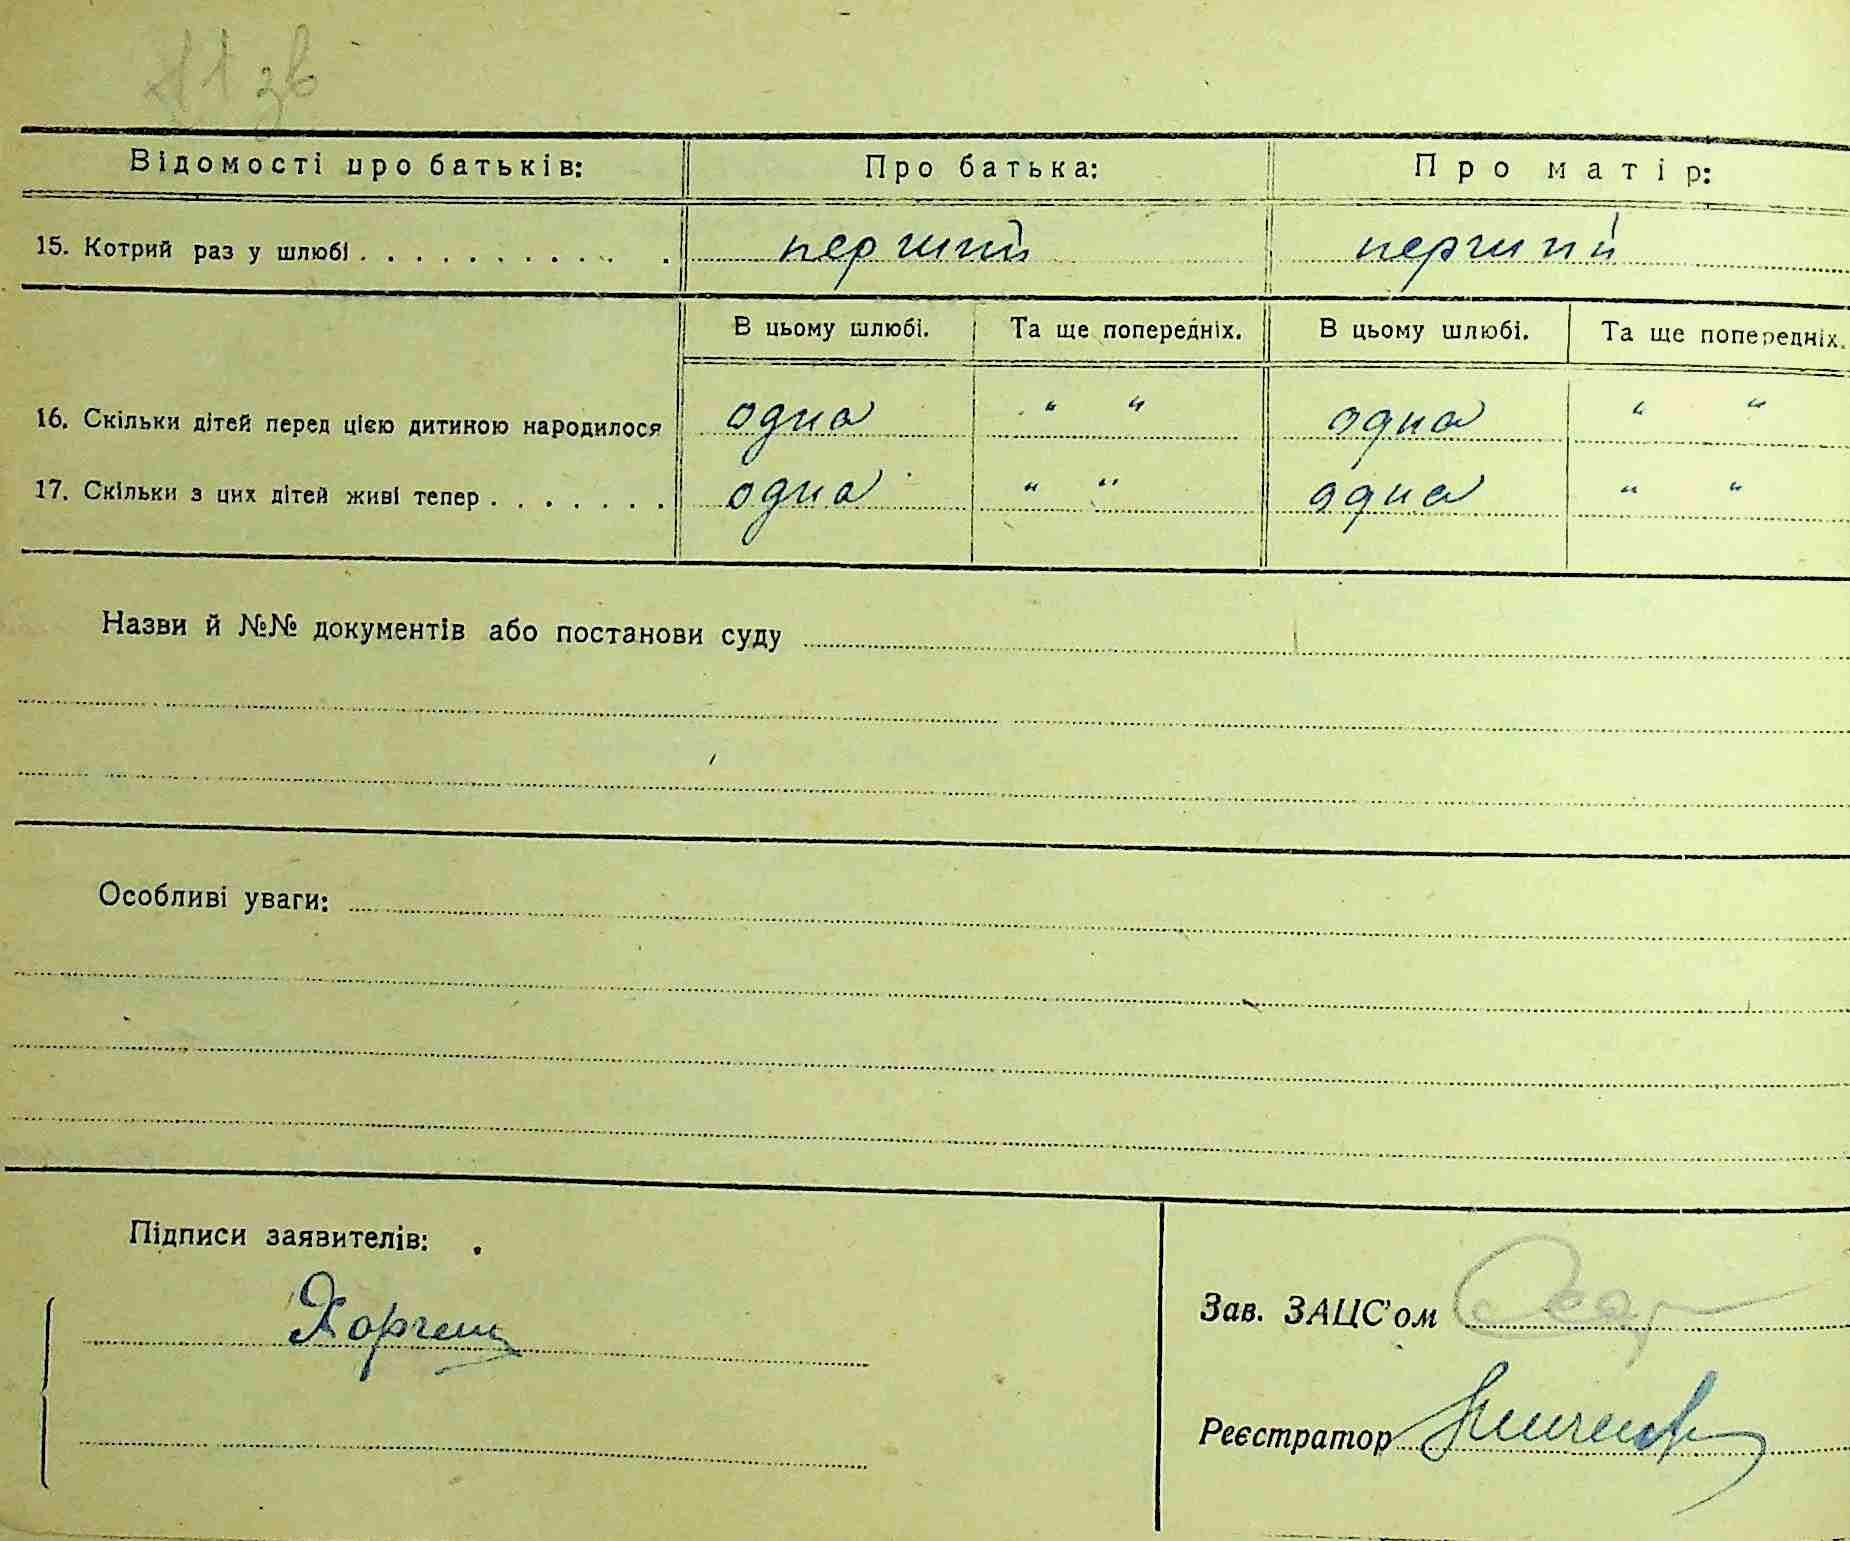 11 зв
Відомості про батьків: Про батька: Про матір:
15. Котрий раз у шлюбі . . . . . . . . . . . . перший перший
В цьому шлюбі. Та ще попередніх. В цьому шлюбі. Та ще попередніх.
16. Скільки дітей перед цією дитиною народилося одна " " одна " "
17. Скільки з цих дітей живі тепер . . . . . . . одна " " одна " "
Назви й №№ документів або постанови суду
Особливі уваги:
Підписи заявителів:
Зав. ЗАЦС'ом
Реєстратор